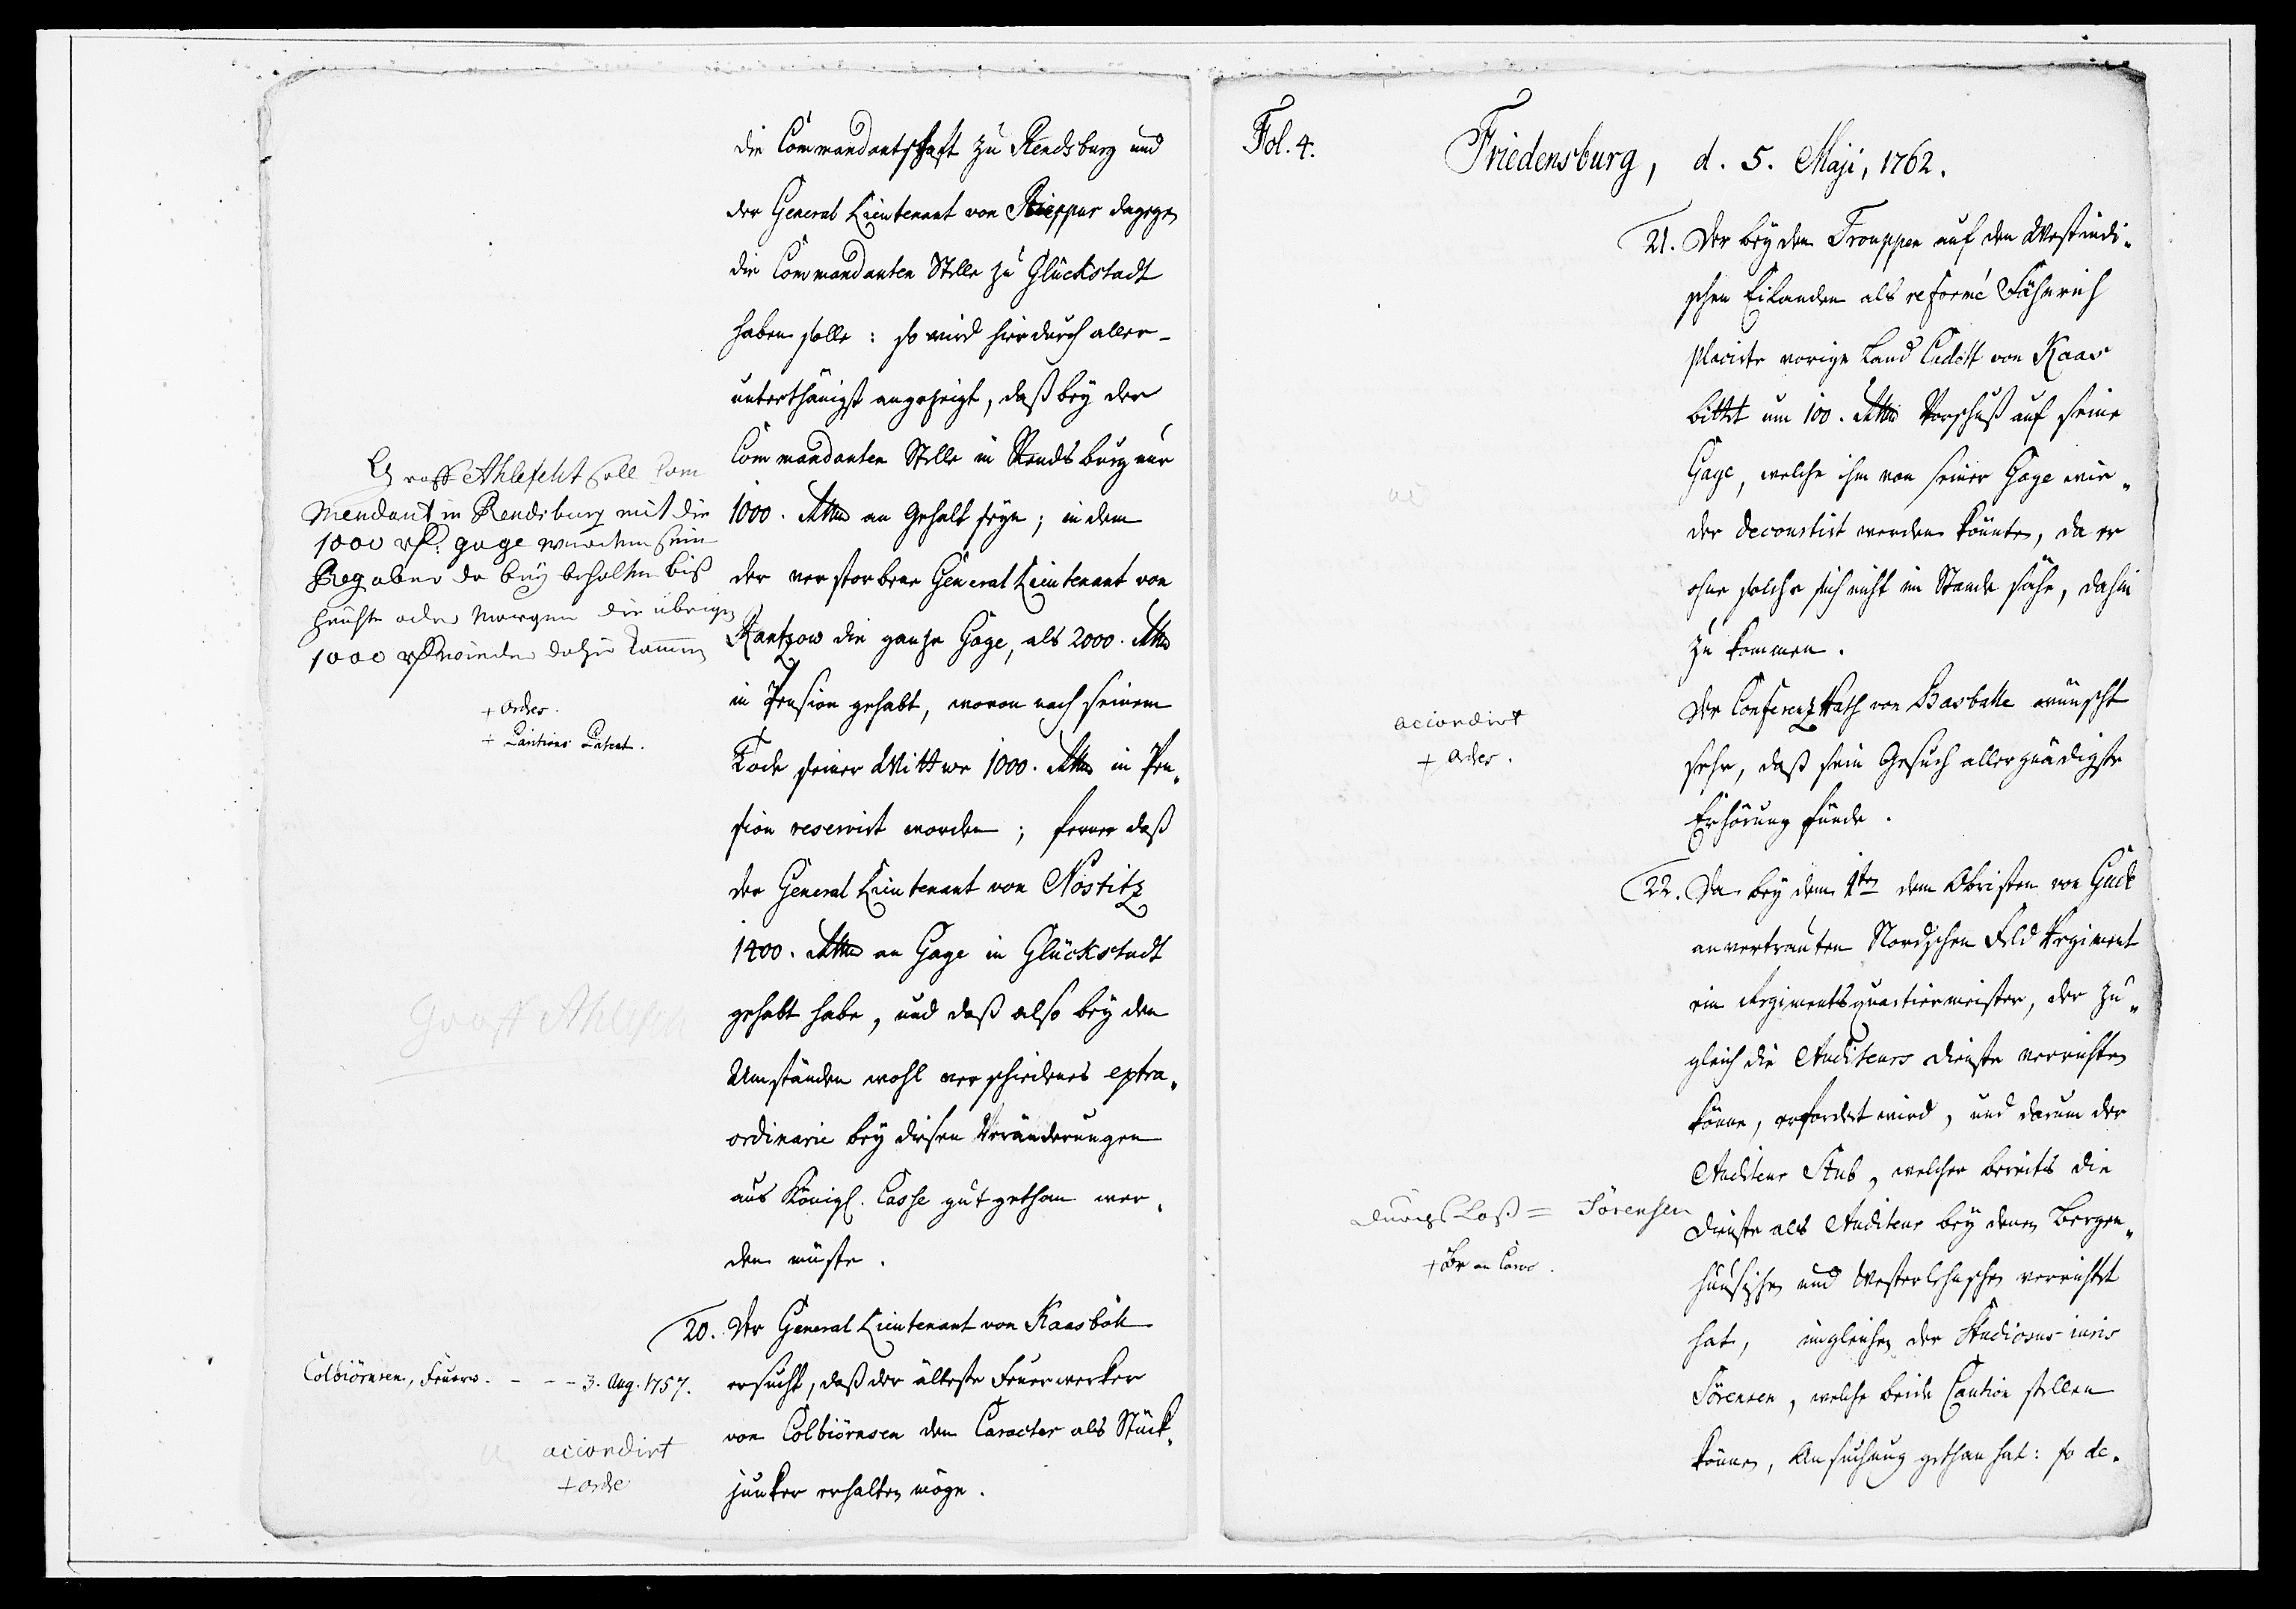 die Commandantschaft zu Rendsburg und
der General Lieutenant von Rieppur dagegen
die Commandanten Stelle zu Glückstadt
haben solle: so wird hierdurch aller-
unterthänigst angezeigt, daß bey der
Commandanten Stelle in Rendsburg nur
1000. Rthlr an Gehalt seyn; indem
der verstorbene General Lieutenant von
Rantzow die ganze Gage, als 2000. Rthlr
in Pension gehabt, wovon nach seinem
Tode seiner Wittwe 1000. Rthlr in Pen„
sion reservirt worden; ferner daß
der General Lieutenant von Nostitz
1400. Rthlr an Gage in Glückstadt
gehabt habe, und daß also bey den
Umständen wohl verschiedenes extra„
ordinarie bey diesen Veränderungen
aus Königl. Casse gut gethan wer„
den müste.
Graff Ahlefeldt soll Com
mendant in Rendsburg mit die
1000 rf: gage werden sein
Reg aber da bey behalten biß
heuhte oder Morgen die übrigen
1000 rf wieder dahin kommen
+ Ordre.
+ Cautions Patent.
Graff Ahlefeldt
20. Der General Lieutenant von Kaasböll
ersucht, daß der älteste Feuerwerker
von Colbiörnsen den Caracter als Stück„
junker erhalten möge.
Colbiörnsen, Feuerw. - - - 3. Aug. 1757.
accordirt
+ Ordre
Fol. 4.
Friedensburg, d. 5. Maji, 1762.
21. Der bey den Trouppen auf den Westindi„
schen Eilanden als reformé Fähnrich
placirte vorige Land Cadett von Kaas
bittet um 100. Rthlr Vorschuß auf seine
Gage, welche ihm von seiner Gage wie„
der decourtirt werden könnte, da er
ohne solche sich nicht im Stande sähe, dahin
zu kommen.
Der Conferenz Rath von Basballe wünscht
sehr, daß sein Gesuch allergnädigste
Erhörung fünde.
accordirt
+ Ordre.
22. Da bey dem 1ten dem Obristen von Gude
anvertrauten Nordschen Feld Regiment
ein Regimentsquartiermeister, der zu„
gleich die Auditeurs Dienste verrichten
könne, erfordert wird, und darum der
Auditeur Stub, welcher bereits die
Dienste als Auditeur bey denen Bergen„
huusischen und Westerlehnschen verrichtet
hat, ingleichen der Studiosus iuris
Sörensen, welche beide Caution stellen
können, Ansuchung gethan hat: so de„
durchs Loß = Sörensen